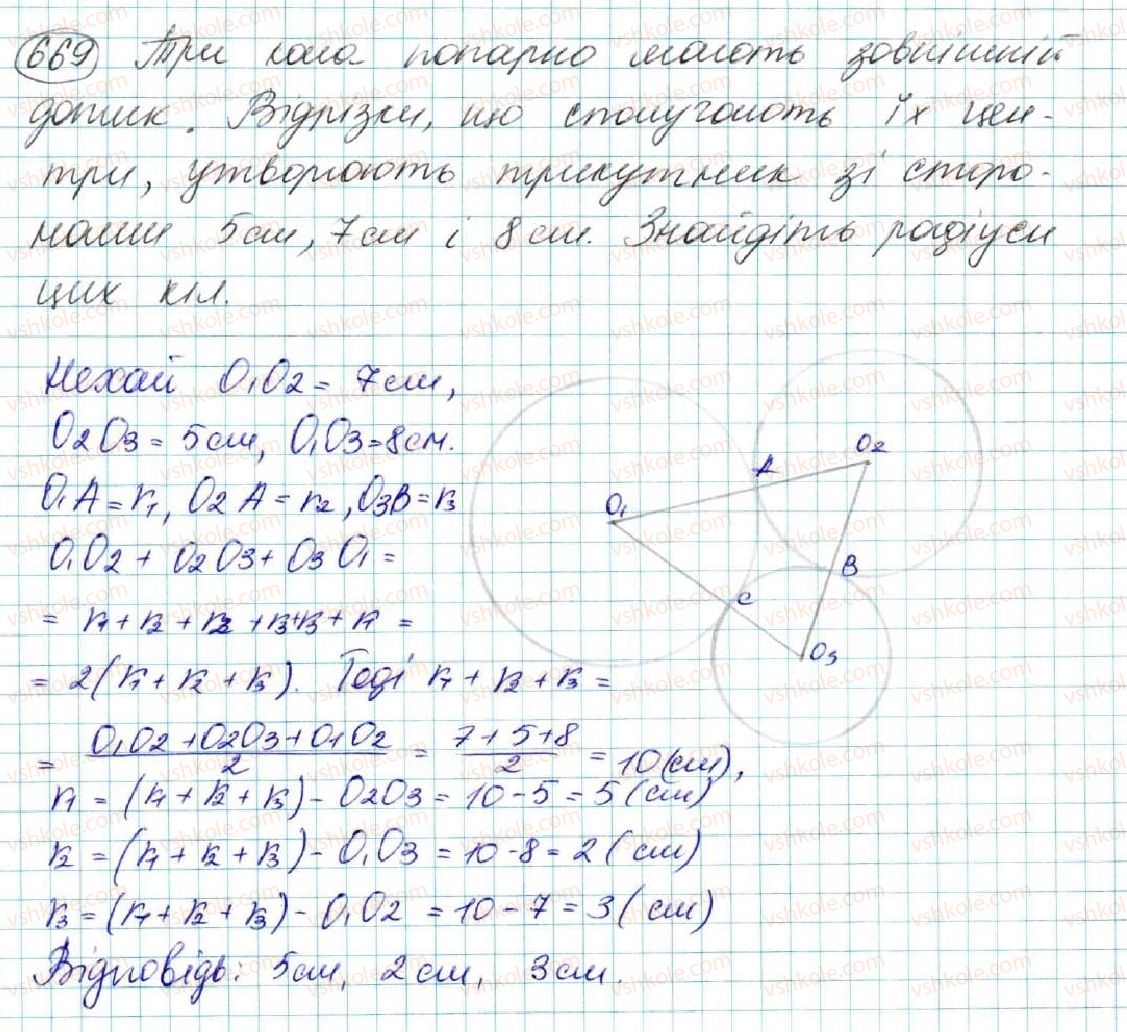 669 Три кола попарно мають зовнішній
дотик. Відрізки, що сполучають їх цен-
три, утворюють трикутник зі сторо-
нами 5 см, 7 см і 8 см. Знайдіть радіуси
цих кіл.
Нехай O1O2 = 7 см,
O2O3 = 5 см, O1O3 = 8 см.
O1A = r1, O2A = r2, O3B = r3
O1O2 + O2O3 + O3O1 =
= r1 + r2 + r2 + r3 + r3 + r1 =
= 2(r1 + r2 + r3). Тоді r1 + r2 + r3 =
= (O1O2 + O2O3 + O1O2)/2 = (7 + 5 + 8)/2 = 10 (см),
r1 = (r1 + r2 + r3) - O2O3 = 10 - 5 = 5 (см)
r2 = (r1 + r2 + r3) - O1O3 = 10 - 8 = 2 (см)
r3 = (r1 + r2 + r3) - O1O2 = 10 - 7 = 3 (см)
Відповідь: 5 см, 2 см, 3 см.
O2
A
O1
B
C
O3
vshkole.com